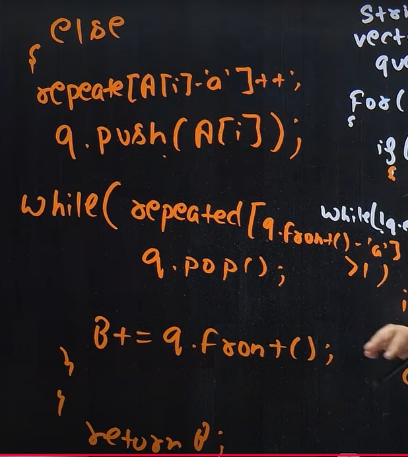 else
{
repeate[A[i]-'a']++;
q.push(A[i]);
while( repeated[q.front()-'a']
>1)
q.pop();
B+= q.front();
}
}
return B;
Stri
vect
que
for(
{
if(
{
while(!q.e